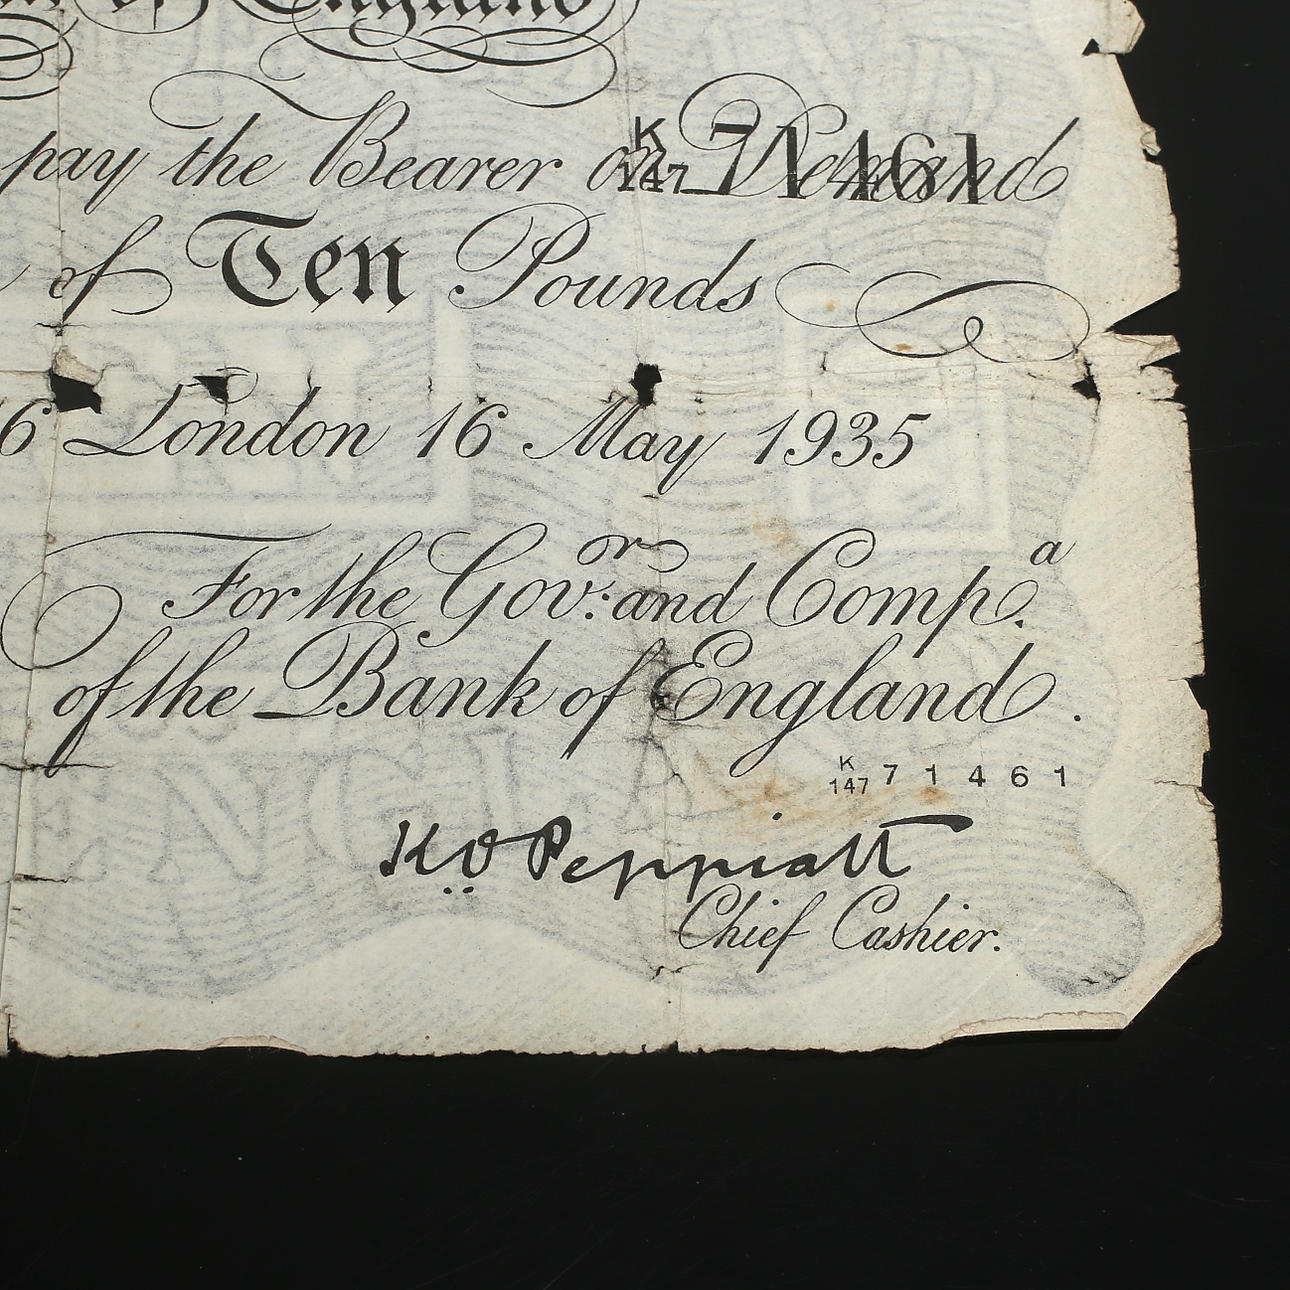 of England
pay the Bearer on Demand
K
147 71461
of Ten Pounds
6 London 16 May 1935
For the Gov.r and Comp.a
of the Bank of England.
K
147 71461
K O Peppiatt
Chief Cashier.
TEN
ENGLA